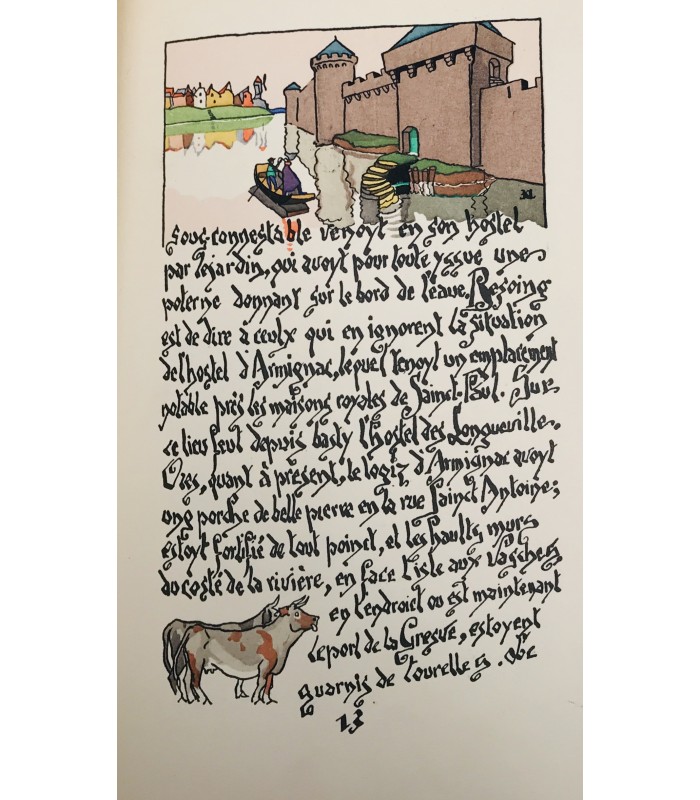 sous-connestable venoyt en son hostel
par le jardin, qui avoyt pour toute yssue une
poterne donnant sur le bord de l'eaue. Besoing
est de dire à ceulx qui en ignorent la situation
de l'hostel d'Armignac, lequel tenoyt un emplacement
notable près les maisons royales de Sainct-Paul. Sur
ce lieu feut depuis basty l'hostel des Longueville.
Ores, quant à présent, le logiz d'Armignac avoyt
ung porche de belle pierre en la rue Sainct Antoine;
estoyt fortifié de tout poinct, et les haults murs
du costé de la rivière, en face l'isle aux Vasches
en l'endroict ou est maintenant
le port de la Gresve, estoyent
guarnis de tourelles.
13